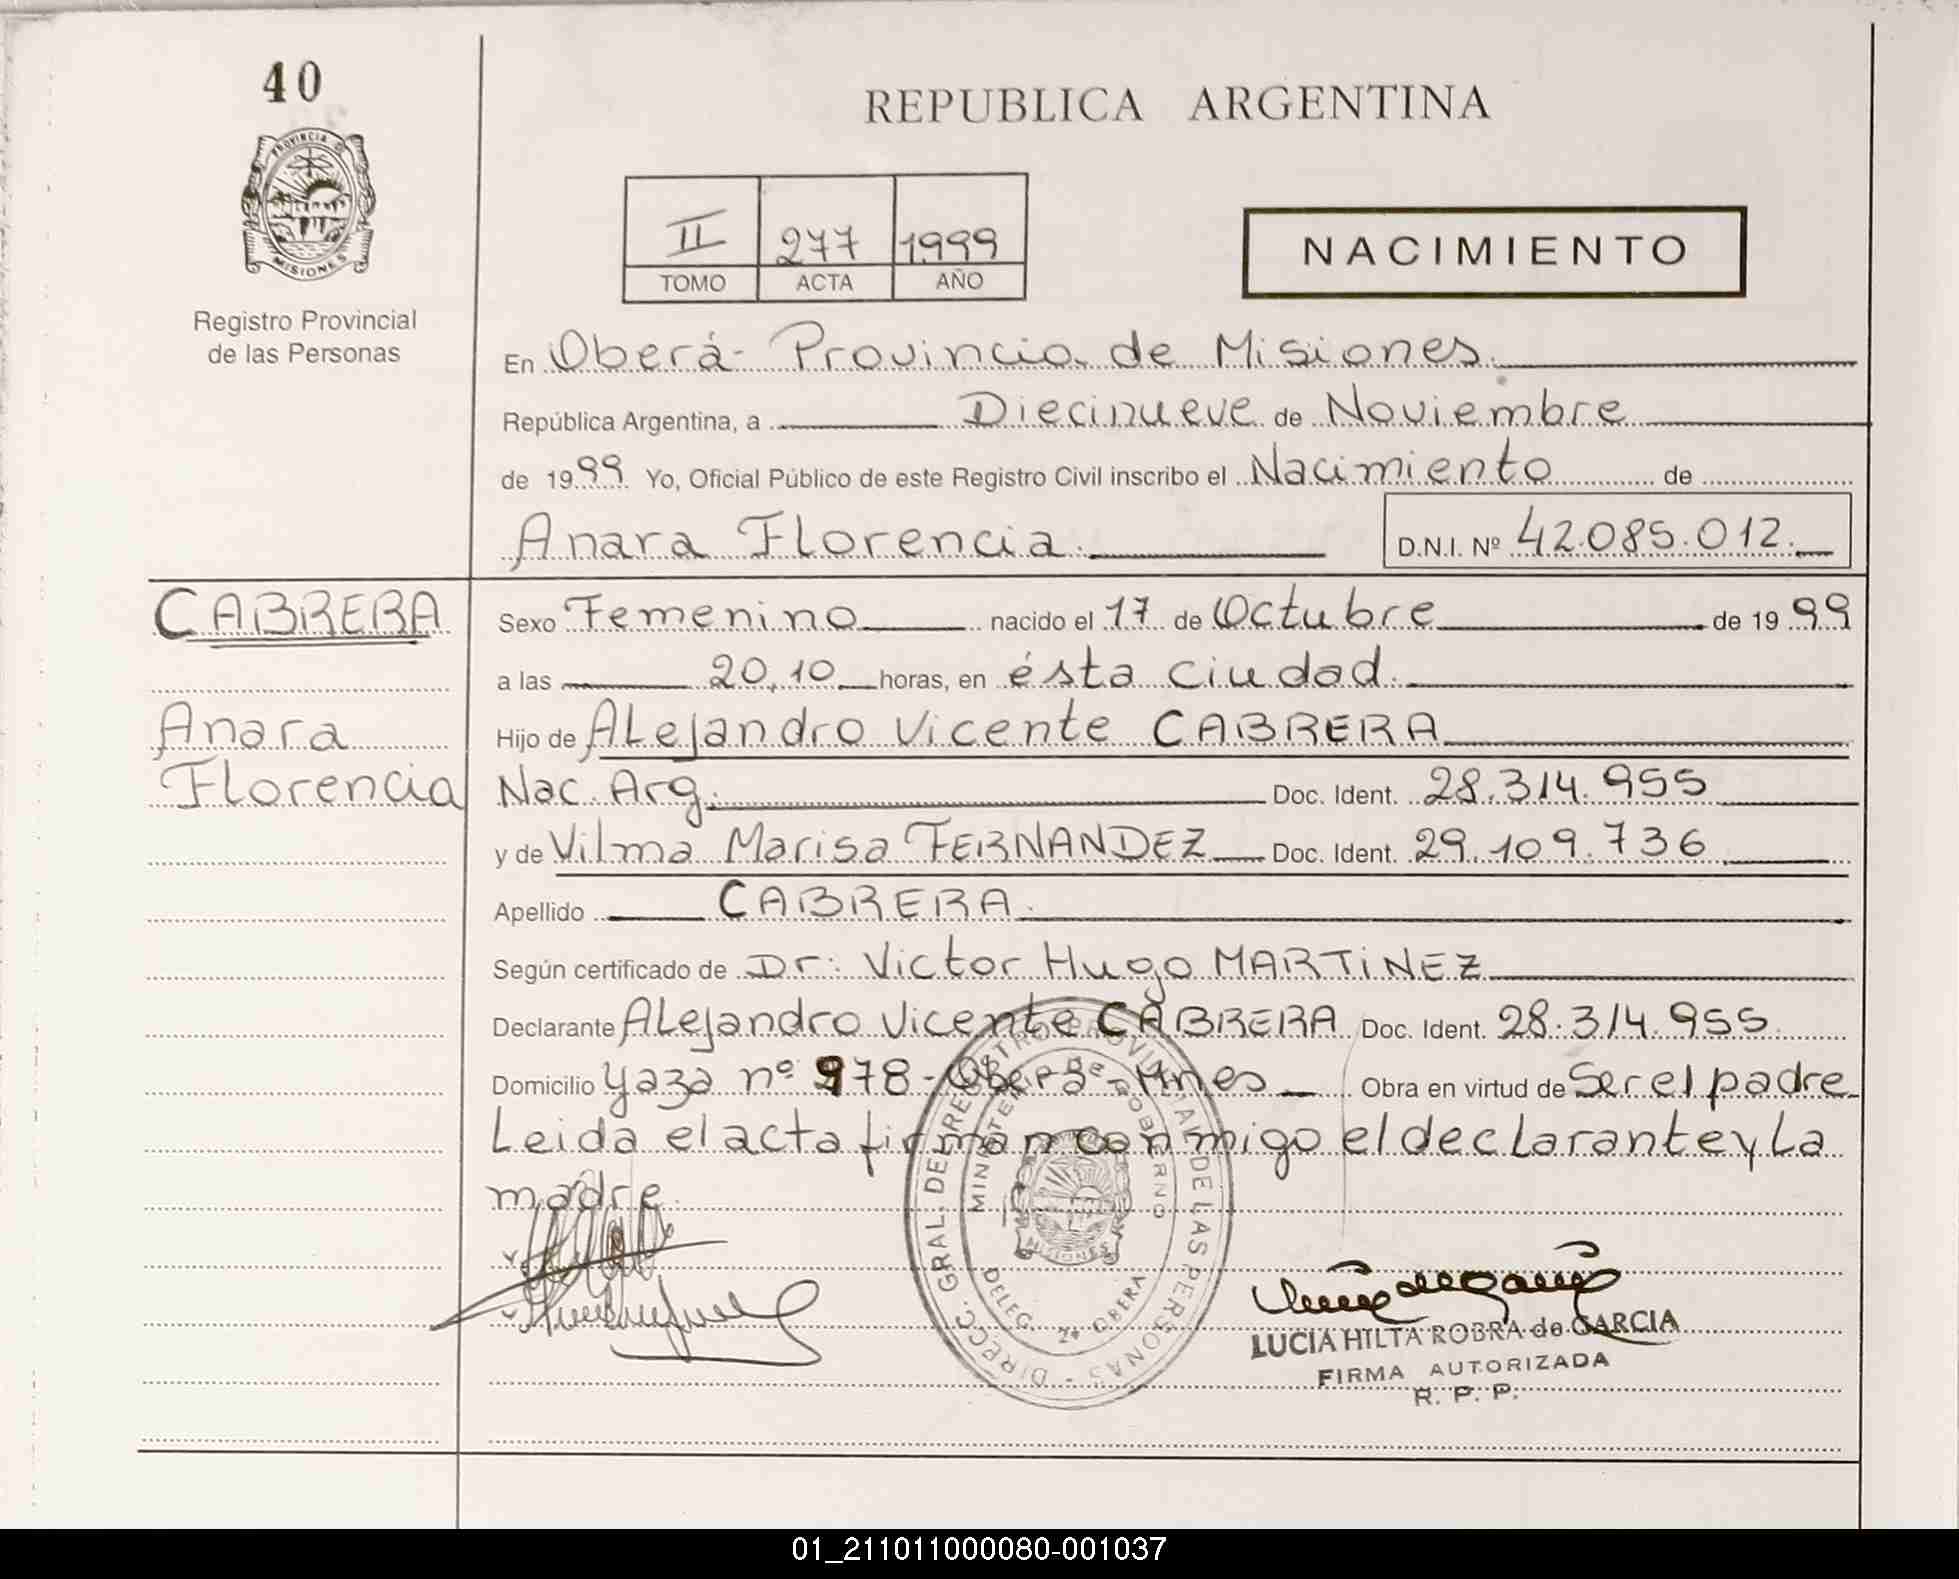 40
PROVINCIA D
MISIONES
Registro Provincial
de las Personas
REPUBLICA ARGENTINA
II 277 1999
TOMO ACTA AÑO
NACIMIENTO
En Oberá- Provincia de Misiones.
República Argentina, a Diecinueve de Noviembre
de 1999 Yo, Oficial Público de este Registro Civil inscribo el Nacimiento de
Anara Florencia. D.N.I. Nº 42.085.012.
CABRERA
Anara
Florencia
Sexo Femenino nacido el 17 de Octubre de 1999
a las 20,10 horas, en ésta ciudad.
Hijo de ALejandro Vicente CABRERA
Nac. Arg. Doc. Ident. 28.314.955
y de Vilma Marisa FERNANDEZ Doc. Ident. 29.109.736
Apellido CABRERA.
Según certificado de Dr: Victor Hugo MARTINEZ
Declarante ALejandro Vicente CABRERA Doc. Ident. 28.314.955
Domicilio Yaza nº 978-Oberá- Mnes Obra en virtud de Ser el padre
Leida el acta firman conmigo el declarante y La
madre.
DIRECC. GRAL. DEL REGISTRO PROVINCIAL DE LAS PERSONAS -
MINISTERIO DE GOBIERNO
MISIONES
DELEG. 2ª OBERA
LUCIA HILTA ROBRA de GARCIA
FIRMA AUTORIZADA
R. P. P.
01_211011000080-001037